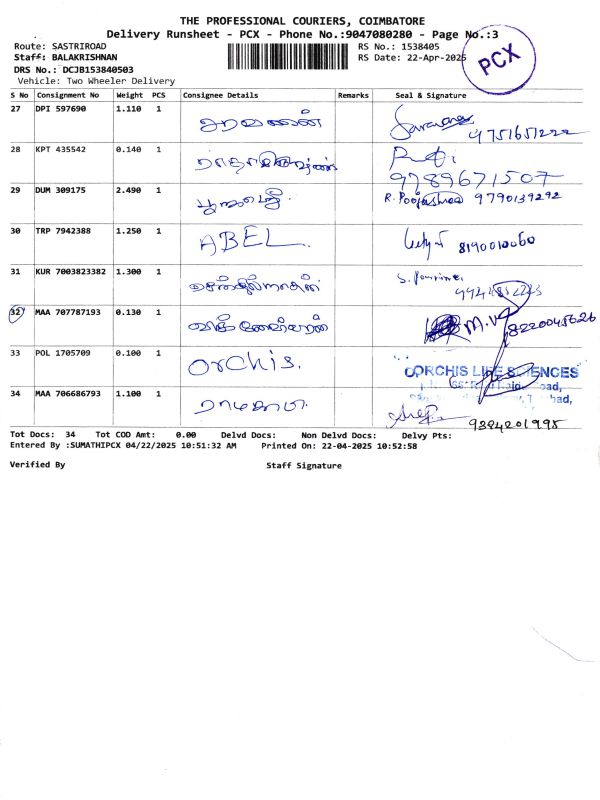 THE PROFESSIONAL COURIERS, COIMBATORE
Delivery Runsheet - PCX - Phone No.:9047080280 - Page No.:3
Route: SASTRIROAD RS No.: 1538405
Staff: BALAKRISHNAN RS Date: 22-Apr-2025
PCX
DRS No.: DCJB153840503
Vehicle: Two Wheeler Delivery
S No Consignment No Weight PCS Consignee Details Remarks Seal & Signature
27 DPI 597690 1.110 1 சரவணன் 9751651222
28 KPT 435542 0.140 1 9789671507
29 DUM 309175 2.490 1 R. Poojashree 9790139292
30 TRP 7942388 1.250 1 ABEL 8190010060
31 KUR 7003823382 1.300 1
32 MAA 707787193 0.130 1 M.V 8220045626
33 POL 1705709 0.100 1 Orchis.
ORCHIS LIFE SCIENCES
34 MAA 706686793 1.100 1 9384201995
Tot Docs: 34 Tot COD Amt: 0.00 Delvd Docs: Non Delvd Docs: Delvy Pts:
Entered By :SUMATHIPCX 04/22/2025 10:51:32 AM Printed On: 22-04-2025 10:52:58
Verified By Staff Signature